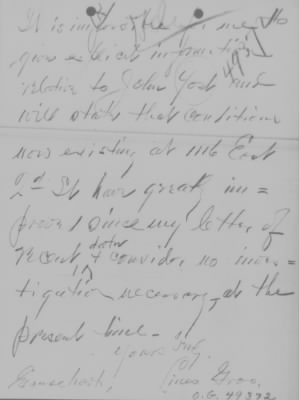 It is impossible for me to
give explicit information
relative to John York and
will state that conditions
now existing at 1116 East
2nd St have greatly im=
proved since my letter of
recent date & consider no inves=
tigation necessary at the
present time.
Yours truly,
O.G. 49372